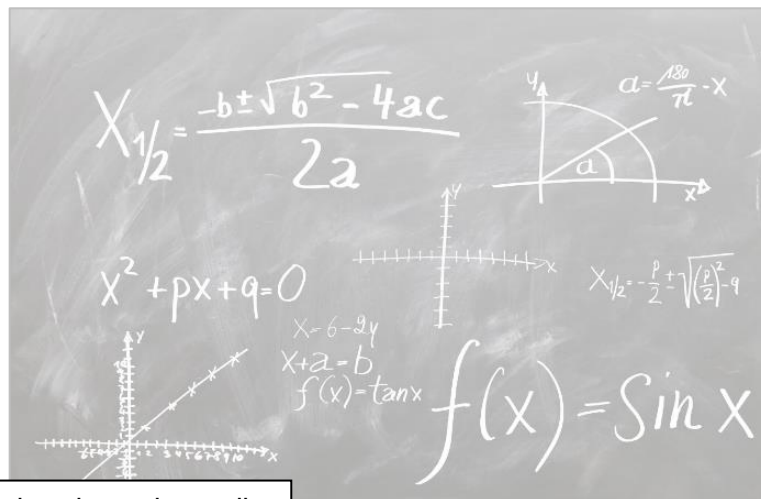 X₁/₂ = (-b ± √(b² - 4ac)) / 2a
y
a = 180/π · x
a
x
y
x
x² + px + q = 0
X₁/₂ = -p/2 ± √((p/2)² - q)
x = 6 - 2y
x + a = b
f(x) = tan x
f(x) = Sin x
y
x